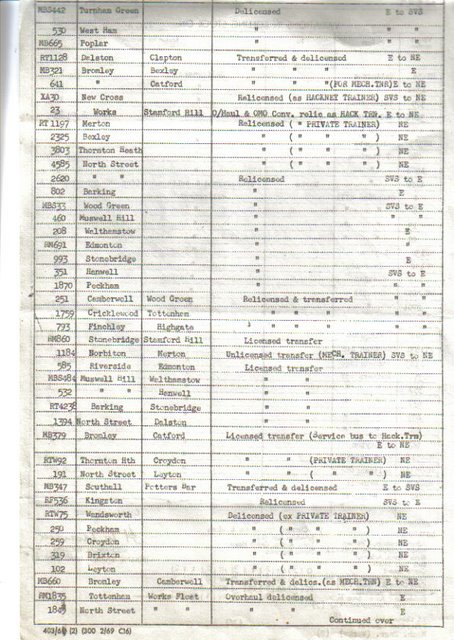 MBS442 Turnham Green Delicensed E to SVS
530 West Ham " " "
MB665 Poplar " " "
RT1128 Dalston Clapton Transferred & delicensed E to NE
MB321 Bromley Bexley " " E
641 " Catford " "(FOR MECH.TNR)E to NE
XA30 New Cross Relicensed (as HACKNEY TRAINER) SVS to NE
23 Works Stamford Hill O/Haul & OMO Conv. relic as HACK TRN. E to NE
RT 1197 Merton Relicensed ( " PRIVATE TRAINER) NE
2325 Bexley " ( " " " ) NE
3803 Thornton Heath " ( " " " ) NE
4585 North Street " ( " " " ) NE
2620 " " Relicensed SVS to E
802 Barking " E
MBS33 Wood Green " SVS to E
460 Muswell Hill " " "
208 Walthamstow " E
RM691 Edmonton " "
993 Stonebridge " E
351 Hanwell " SVS to E
1870 Peckham " " "
251 Camberwell Wood Green Relicensed & transferred " "
1759 Cricklewood Tottenham " " " " "
793 Finchley Highgate " " " " "
RM860 Stonebridge Stamford Hill Licensed transfer
1184 Norbiton Merton Unlicensed transfer (MECH. TRAINER) SVS to NE
585 Riverside Edmonton Licensed transfer
MBS484 Muswell Hill Walthamstow " "
532 " " Hanwell " "
RT4238 Barking Stonebridge " "
1394 North Street Dalston " "
MB379 Bromley Catford Licensed transfer (Service bus to Hack.Trn)
E to NE
RTW92 Thornton Hth Croydon " " (PRIVATE TRAINER) NE
191 North Street Leyton " " ( " " ) NE
MB347 Southall Potters Bar Transferred & delicensed E to SVS
RF536 Kingston Relicensed SVS to E
RTW75 Wandsworth Delicensed (ex PRIVATE TRAINER) NE
250 Peckham " ( " " " ) NE
259 Croydon " ( " " " ) NE
319 Brixton " ( " " " ) NE
102 Leyton " ( " " " ) NE
MB660 Bromley Camberwell Transferred & delics.(as MECH.TNR) E to NE
RM1835 Tottenham Works Fleet Overhaul delicensed E
North Street " " " " E
Continued over
(2) (300 2/69 C16)